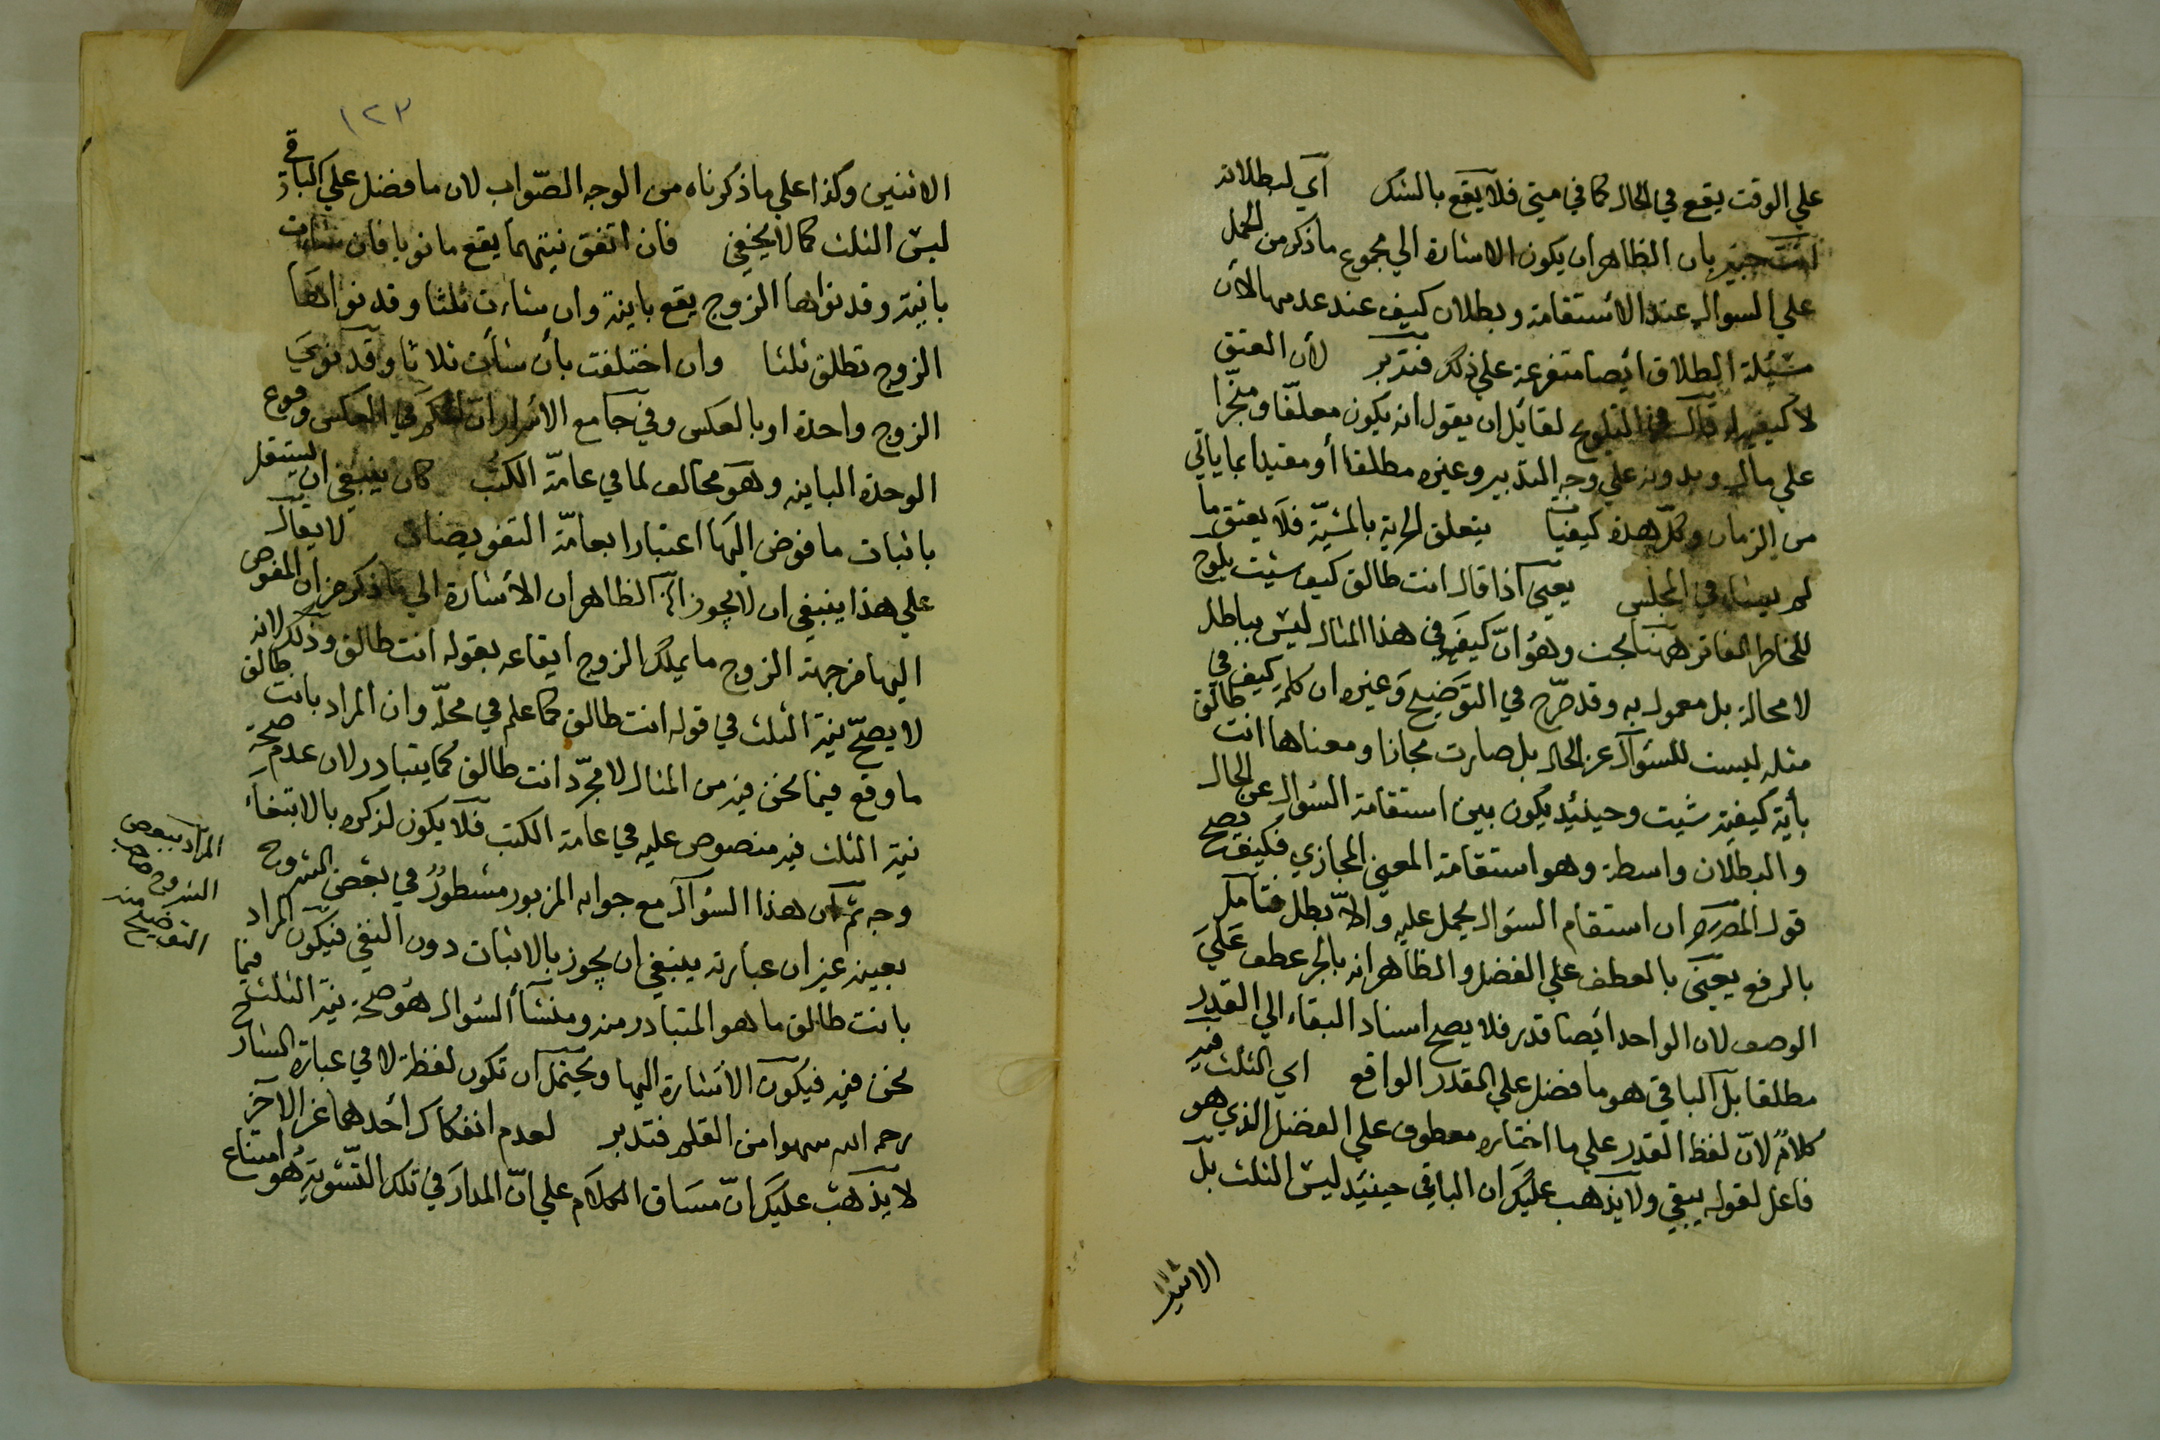 علي الوقت يقع في الحال كما في ميتي فلا يقع بالشك اي لبطلانه
انت خبير بان الظاهر ان يكون الاشارة الي مجموع ما ذكر من الحمل
علي السوال عند الاستقامة وبطلان كيف عند عدمها لان
مسئلة الطلاق ايضا متفرعة علي ذلك فتدبر لان العتق
لا كيفية له قال في التلويح لقائل ان يقول انه يكون معلقا ومنجزا
علي مال وبدونه علي وجه التدبير وغيره مطلقا أو مقيدا بما ياتي
من الزمان وكل هذه كيفيات يتعلق الحرية بالمشية فلا يعتق ما
لم يشاء في المجلس يعني اذا قال انت طالق كيف شيت يلوح
للخاطر الفاتر ههنا بحث وهو انّ كيف في هذا المثال ليس بباطل
لا محالة بل معمول به وقد صرّح في التوضيح وغيره ان كلمة كيف في
مثله ليست للسؤال عن الحال بل صارت مجازا ومعناها انت طالق
بأية كيفية شيت وحينئيد يكون بين استقامة السؤال عن الحال
والبطلان واسطة وهو استقامة المعني المجازي فكيف يصح
قول المص ره ان استقام السؤال يحمل عليه والا بطل فتأمل
بالرفع يعني بالعطف علي الفضل والظاهر انه بالجر عطف علي
الوصف لان الواحد ايضا قدر فلا يصح اسناد البقاء الي القدر
مطلقا بل الباقي هو ما فضل علي القدر الواقع اي الثلث فيه
كلامٌ لانّ لفظ القدر علي ما اختاره معطوف علي الفضل الذي هو
فاعل لقوله يبقي ولا يذهب عليك ان الباقي حينئيد ليس الثلث بل
الاثنين
١٢٣
الاثنين وكذا علي ما ذكرناه من الوجه الصّواب لان ما فضل علي الباقي
ليس الثلث كما لا يخفي فان اتفق نيتهما يقع ما نويا فان شاءت
باينة وقد نواها الزوج يقع باينة وان شاءت ثلثا وقد نواها
الزوج تطلق ثلثا وان اختلفت بأن شأت ثلاثا وقد نوي
الزوج واحدة او بالعكس وفي جامع الأسرار انّ الحكم في العكس وقوع
الوحدة الباينه وهو مخالف لما في عامّة الكتب كان ينبغي ان يستقل
باثبات ما فوض اليها اعتبارا بعامّة التفويضات لا يقال
علي هذا ينبغي ان لا يجوز الخ الظاهر ان الأشارة الي ما ذكر من ان المفوض
اليها من جهة الزوج ما يملك الزوج ايقاعه بقوله انت طالق وذلك لانه
لا يصحّ نية الثلث في قوله انت طالق كما علم في محلّه وان المراد بانت طالق
ما وقع فيما نحن فيه من المثال لا مجرّد انت طالق كما يتبادر لان عدم صحة
نية الثلث فيه منصوص عليه في عامة الكتب فلا يكون لذكره بالابتغاء
وجه ثم ان هذا السؤال مع جوابه المزبور مسطورٌ في بعض الشروح
بعينه غير ان عبارته ينبغي ان يجوز بالاثبات دون النفي فيكون المراد
بانت طالق ما هو المتبادر منه ومنشأ السؤال هو صحة نية الثلث فيما
نحن فيه فيكون الأشارة اليها ويحتمل ان تكون لفظة لا في عبارة الشارح
رحمه الله سهوا من القلم فتدبر لعدم انفكاك أحدهما عن الآخر
لا يذهب عليك انّ مساق الكلام علي انّ المدار في تلك التسوية هو امتناع
المراد ببعض
الشروح
التوضيح منه